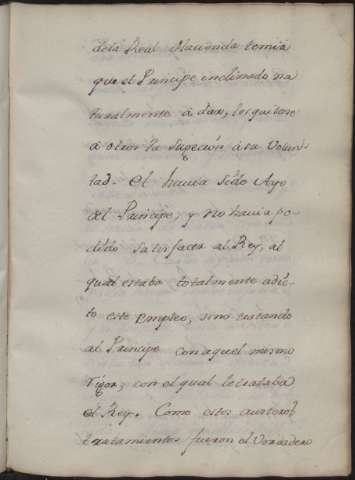 dela Real Hacienda temia
que el Principe inclinado na
turalmente à dar, los quitase
à otros la sugecion à su Volun
tad. El havia sido Ayo
del Principe, y no havia po
dido satisfacer al Rey, al
qual estaba totalmente adic-
to este empleo, sino tratando
al Principe con aquel mismo
rigor, con el qual le trataba
el Rey. Como estos austeros
tratamientos fueron el Verdadero